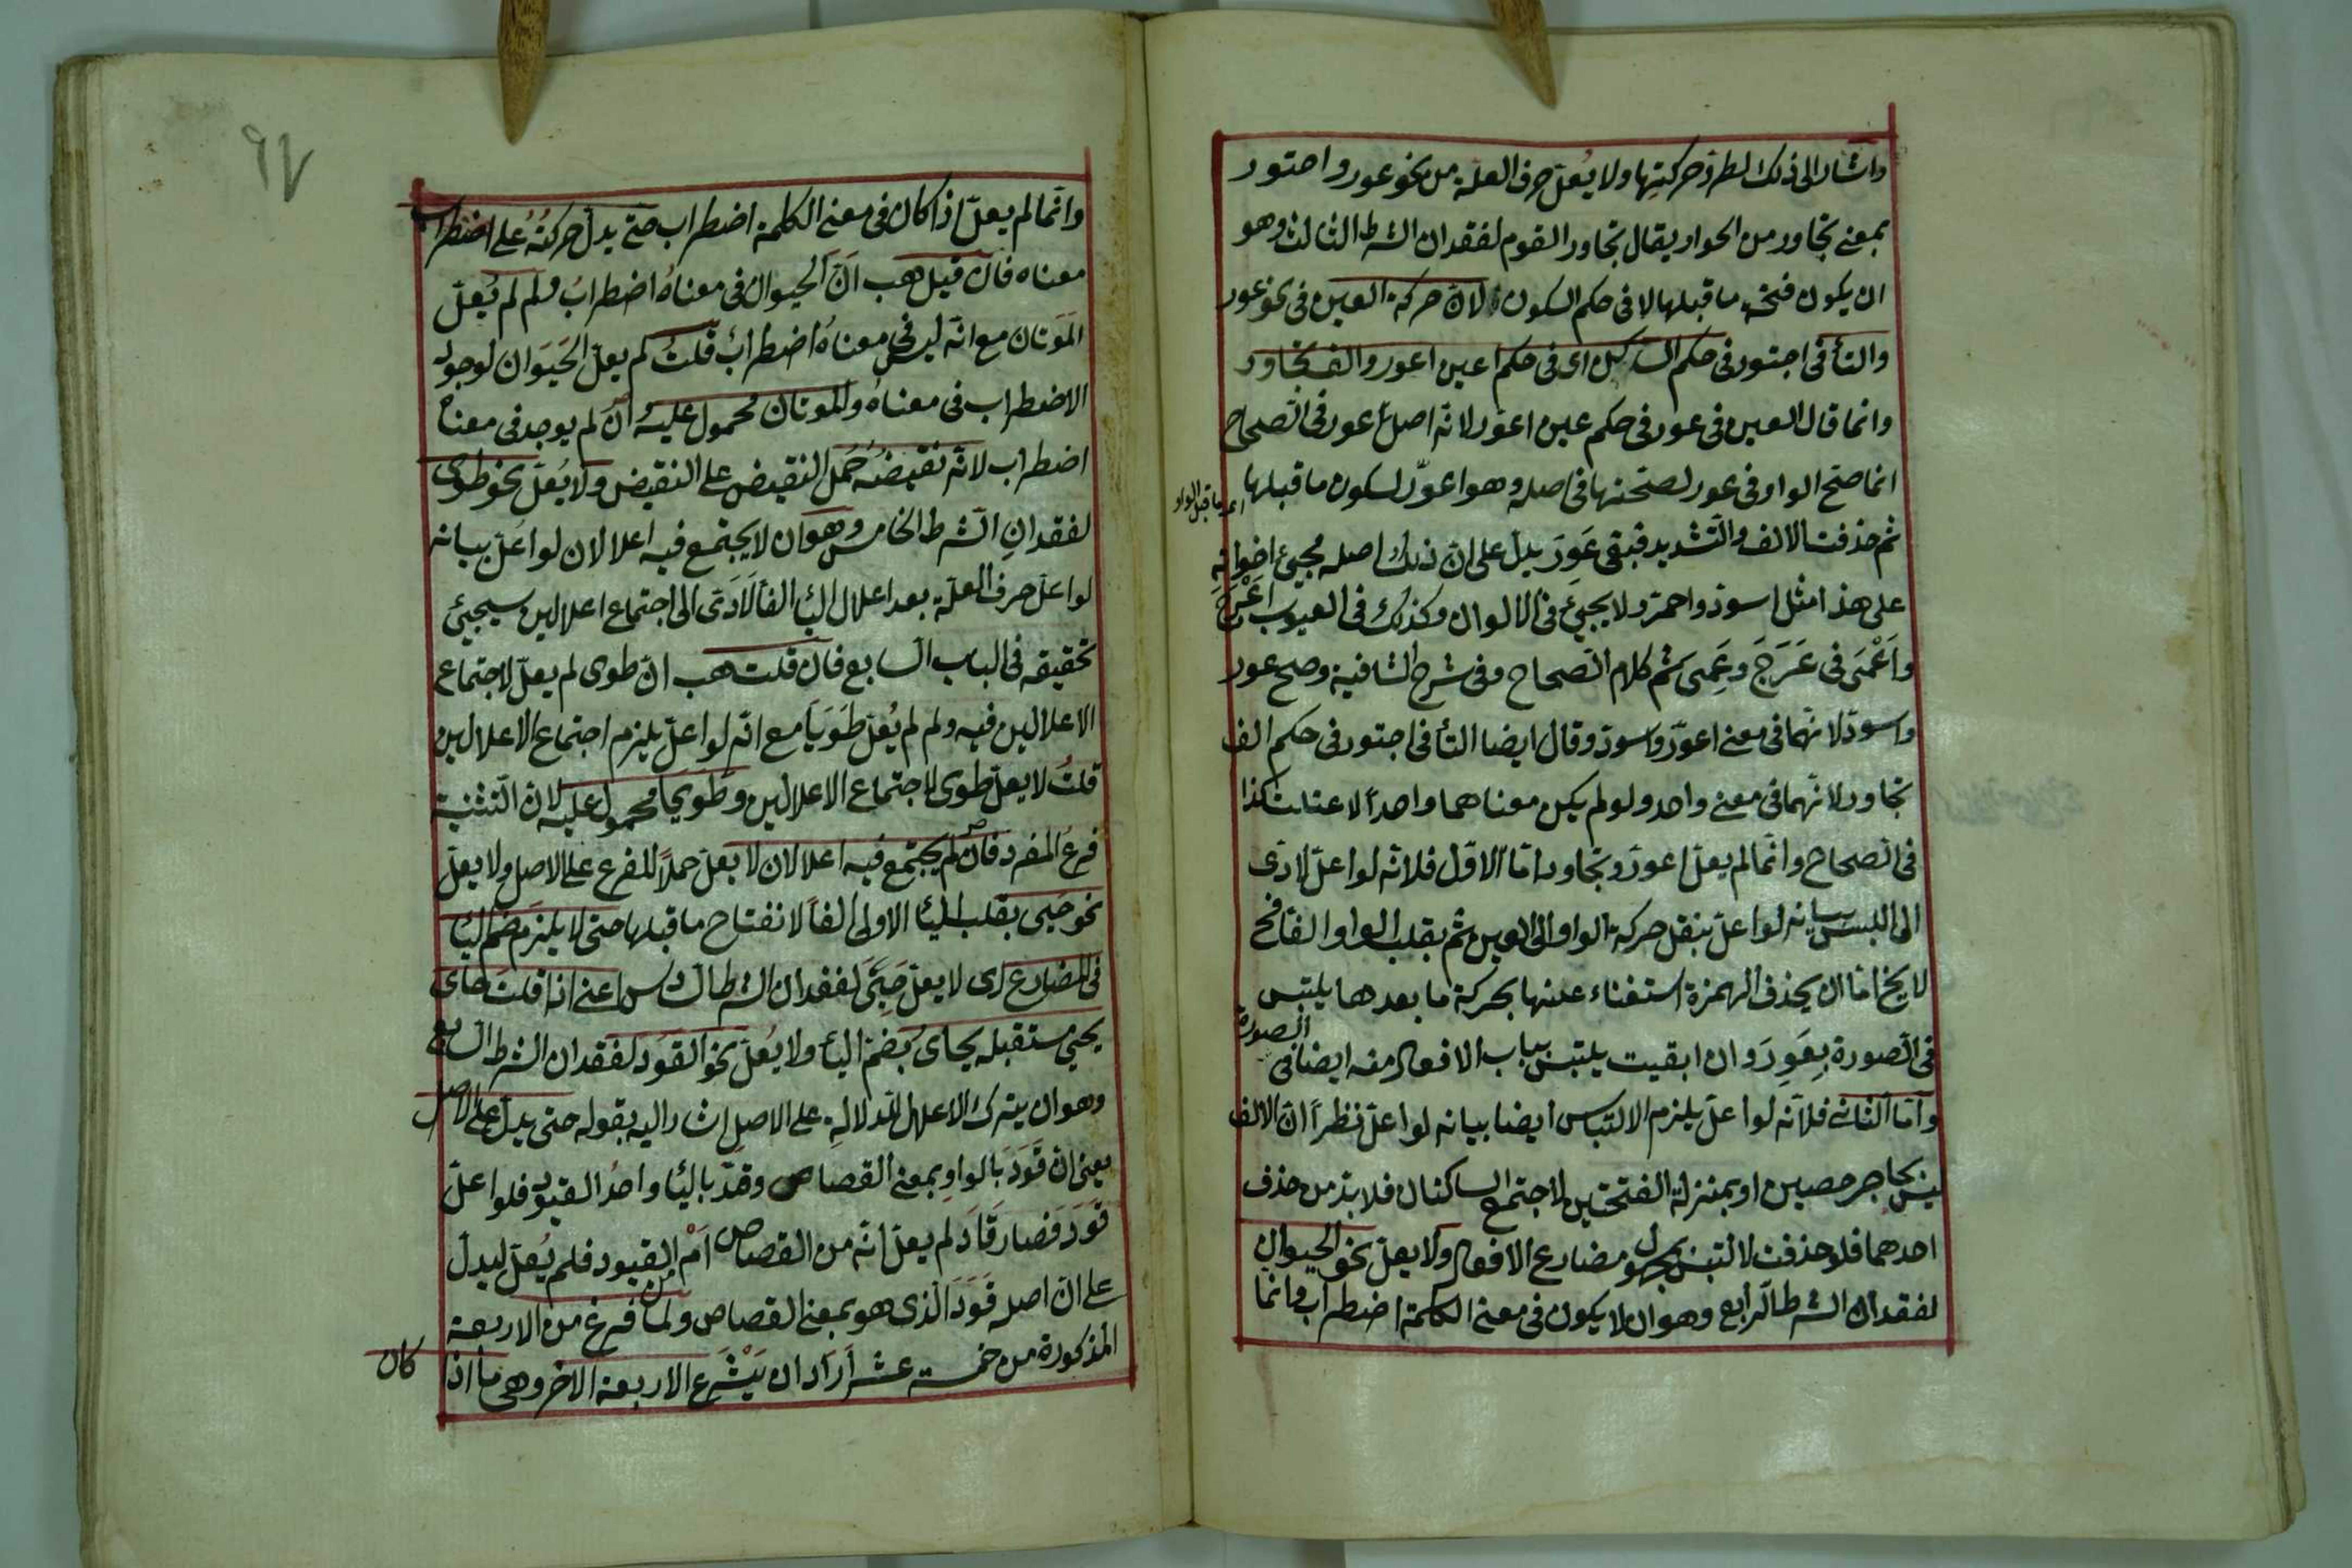 واشار الى ذلك لطرو حركتها ولا يُعلّ حرف العلة من نحو عور واجتور
بمعنى تجاور من الجوار يقال تجاور القوم لفقدان الشرط الثالث وهو
ان يكون فتحة ما قبلها لا في حكم السكون لانّ حركة العين في نحو عور
والتأ في اجتور في حكم الساكن اى في حكم عين اعور والف تجاور
وانما قال العين في عور في حكم عين اعور لانه اصل عور في الصحاح
انما صح الواو في عور لصحتها في اصله وهو اعورّ لسكون ما قبلها
اى ما قبل الواو
ثم حذفت الالف والتشديد فبقى عَوِرَ يدل على انّ ذلك اصله مجيئ اخواته
على هذا مثل اسودّ واحمرّ ولا يجيئ في الالوان وكذلك في العيوب اَعْرَجَ
واَعْمَى في عَرَجَ وعَمِىَ تم كلام الصحاح وفي شرح الشافية وصح عور
واسودّ لانهما في معنى اعورّ واسودّ وقال ايضا التأ في اجتور في حكم الف
تجاور لانهما في معنى واحد ولو لم يكن معناهما واحداً لاعتلت كذا
في الصحاح وانّما لم يعلّ اعور وتجاور امّا الاوّل فلانّه لو اعلّ لادّى
الى اللبس بيانه لو اعلّ بنقل حركة الواو الى العين ثم بقلب الواو الفا فح
لا يخ امّا ان يحذف الهمزة استغناء عنها بحركة ما بعدها يلتبس
في الصورة بِعَوِرَ وان ابقيت يلتبس بباب الافعال منه ايضا في الصورة
وامّا الثانى فلانّه لو اعلّ يلزم الالتباس ايضا بيانه لو اعلّ نظراً انّ الالف
ليس بحاجز حصين او بمنزلة الفتحتين لاجتمع الساكنان فلا بدّ من حذف
احدهما فلو حذفت لالتبس بمجهول مضارع الافعال ولا يعلّ نحو الحيوان
لفقدان الشرط الرابع وهو ان لا يكون في معنى الكلمة اضطراب وانما
٩٧
وانّما لم يعلّ اذا كان في معنى الكلمة اضطراب حتى يدلّ حركتُهُ على اضطراب
معناه فان قيل هب انّ الحيوان في معناهُ اضطرابٌ فلم لم يُعلّ
المَوَتان مع انّه ليس في معناهُ اضطرابٌ قلتُ لم يعلّ الحَيَوان لوجود
الاضطراب في معناهُ والموتان محمول عليه ان لم يوجد في معناهُ
اضطراب لانّه نقيضُه حُمل النقيض على النقيض ولا يُعلّ نحو طوى
لفقدانِ الشرط الخامس وهو ان لا يجتمع فيه اعلالان لو اعلّ بيانه
لو اعلّ حرف العلّة بعد اعلال اليأ الفاً لَادّى الى اجتماع اعلالين سيجيئ
تحقيقه في الباب السابع فان قلت هب انّ طوى لم يعلّ لاجتماع
الاعلالين فيه ولم لم يُعلّ طَوَيَا مع انّه لو اعلّ يلزم اجتماع الاعلالين
قلتُ لا يعلّ طوى لاجتماع الاعلالين وطويا محمول عليه لانّ التثنية
فرعُ المفرد فان لم يجتمع فيه اعلالان لا يعلّ حملاً للفرع على الاصل ولا يعلّ
نحو حَيِىَ بقلب اليأ الاولى الفاً لانفتاح ما قبلها حتى لا يلزم ضم اليأ
في المضارع اى لا يعلّ حَيِىَ لفقدان الشرط السادس اعنى اذا قلتَ حاى
يجئ مستقبله يحاىُ بضم اليأ ولا يُعلّ نحو القَوَد لفقدان الشرط السابع
وهو ان يترك الاعلال للدلالة على الاصل اشار اليه بقوله حتى يدلّ على الاصل
يعنى انّ قَوَدَ بالواو بمعنى القصاص وقيد باليأ واحدُ القيود فلو اعلّ
قَوَدَ فصار قَادَ لم يعلّ انّه من القصاص اَمْ من القيود فلم يُعلّ ليدلّ
على انّ اصله قَوَدَ الذى هو بمعنى القصاص ولما فرغ من الاربعة
المذكورة من خمسة عشر اَرَادَ ان يَشْرَع الاربعة الاخر وهى ما اذا
كان